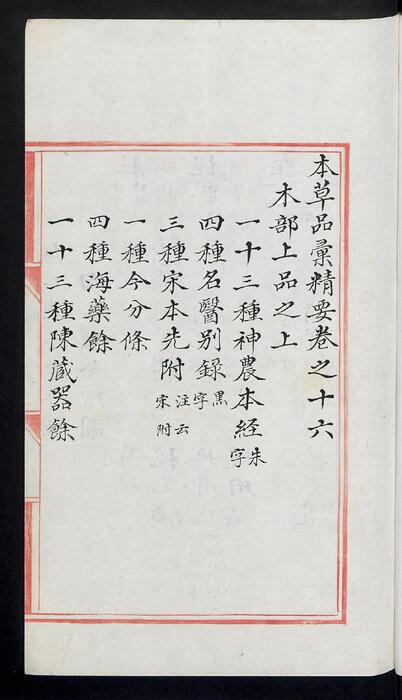 本草品彙精要卷之十六
木部上品之上
一十三種神農本經朱字
四種名醫別錄黑字
三種宋本先附注云宋附
一種今分條
四種海藥餘
一十三種陳藏器餘